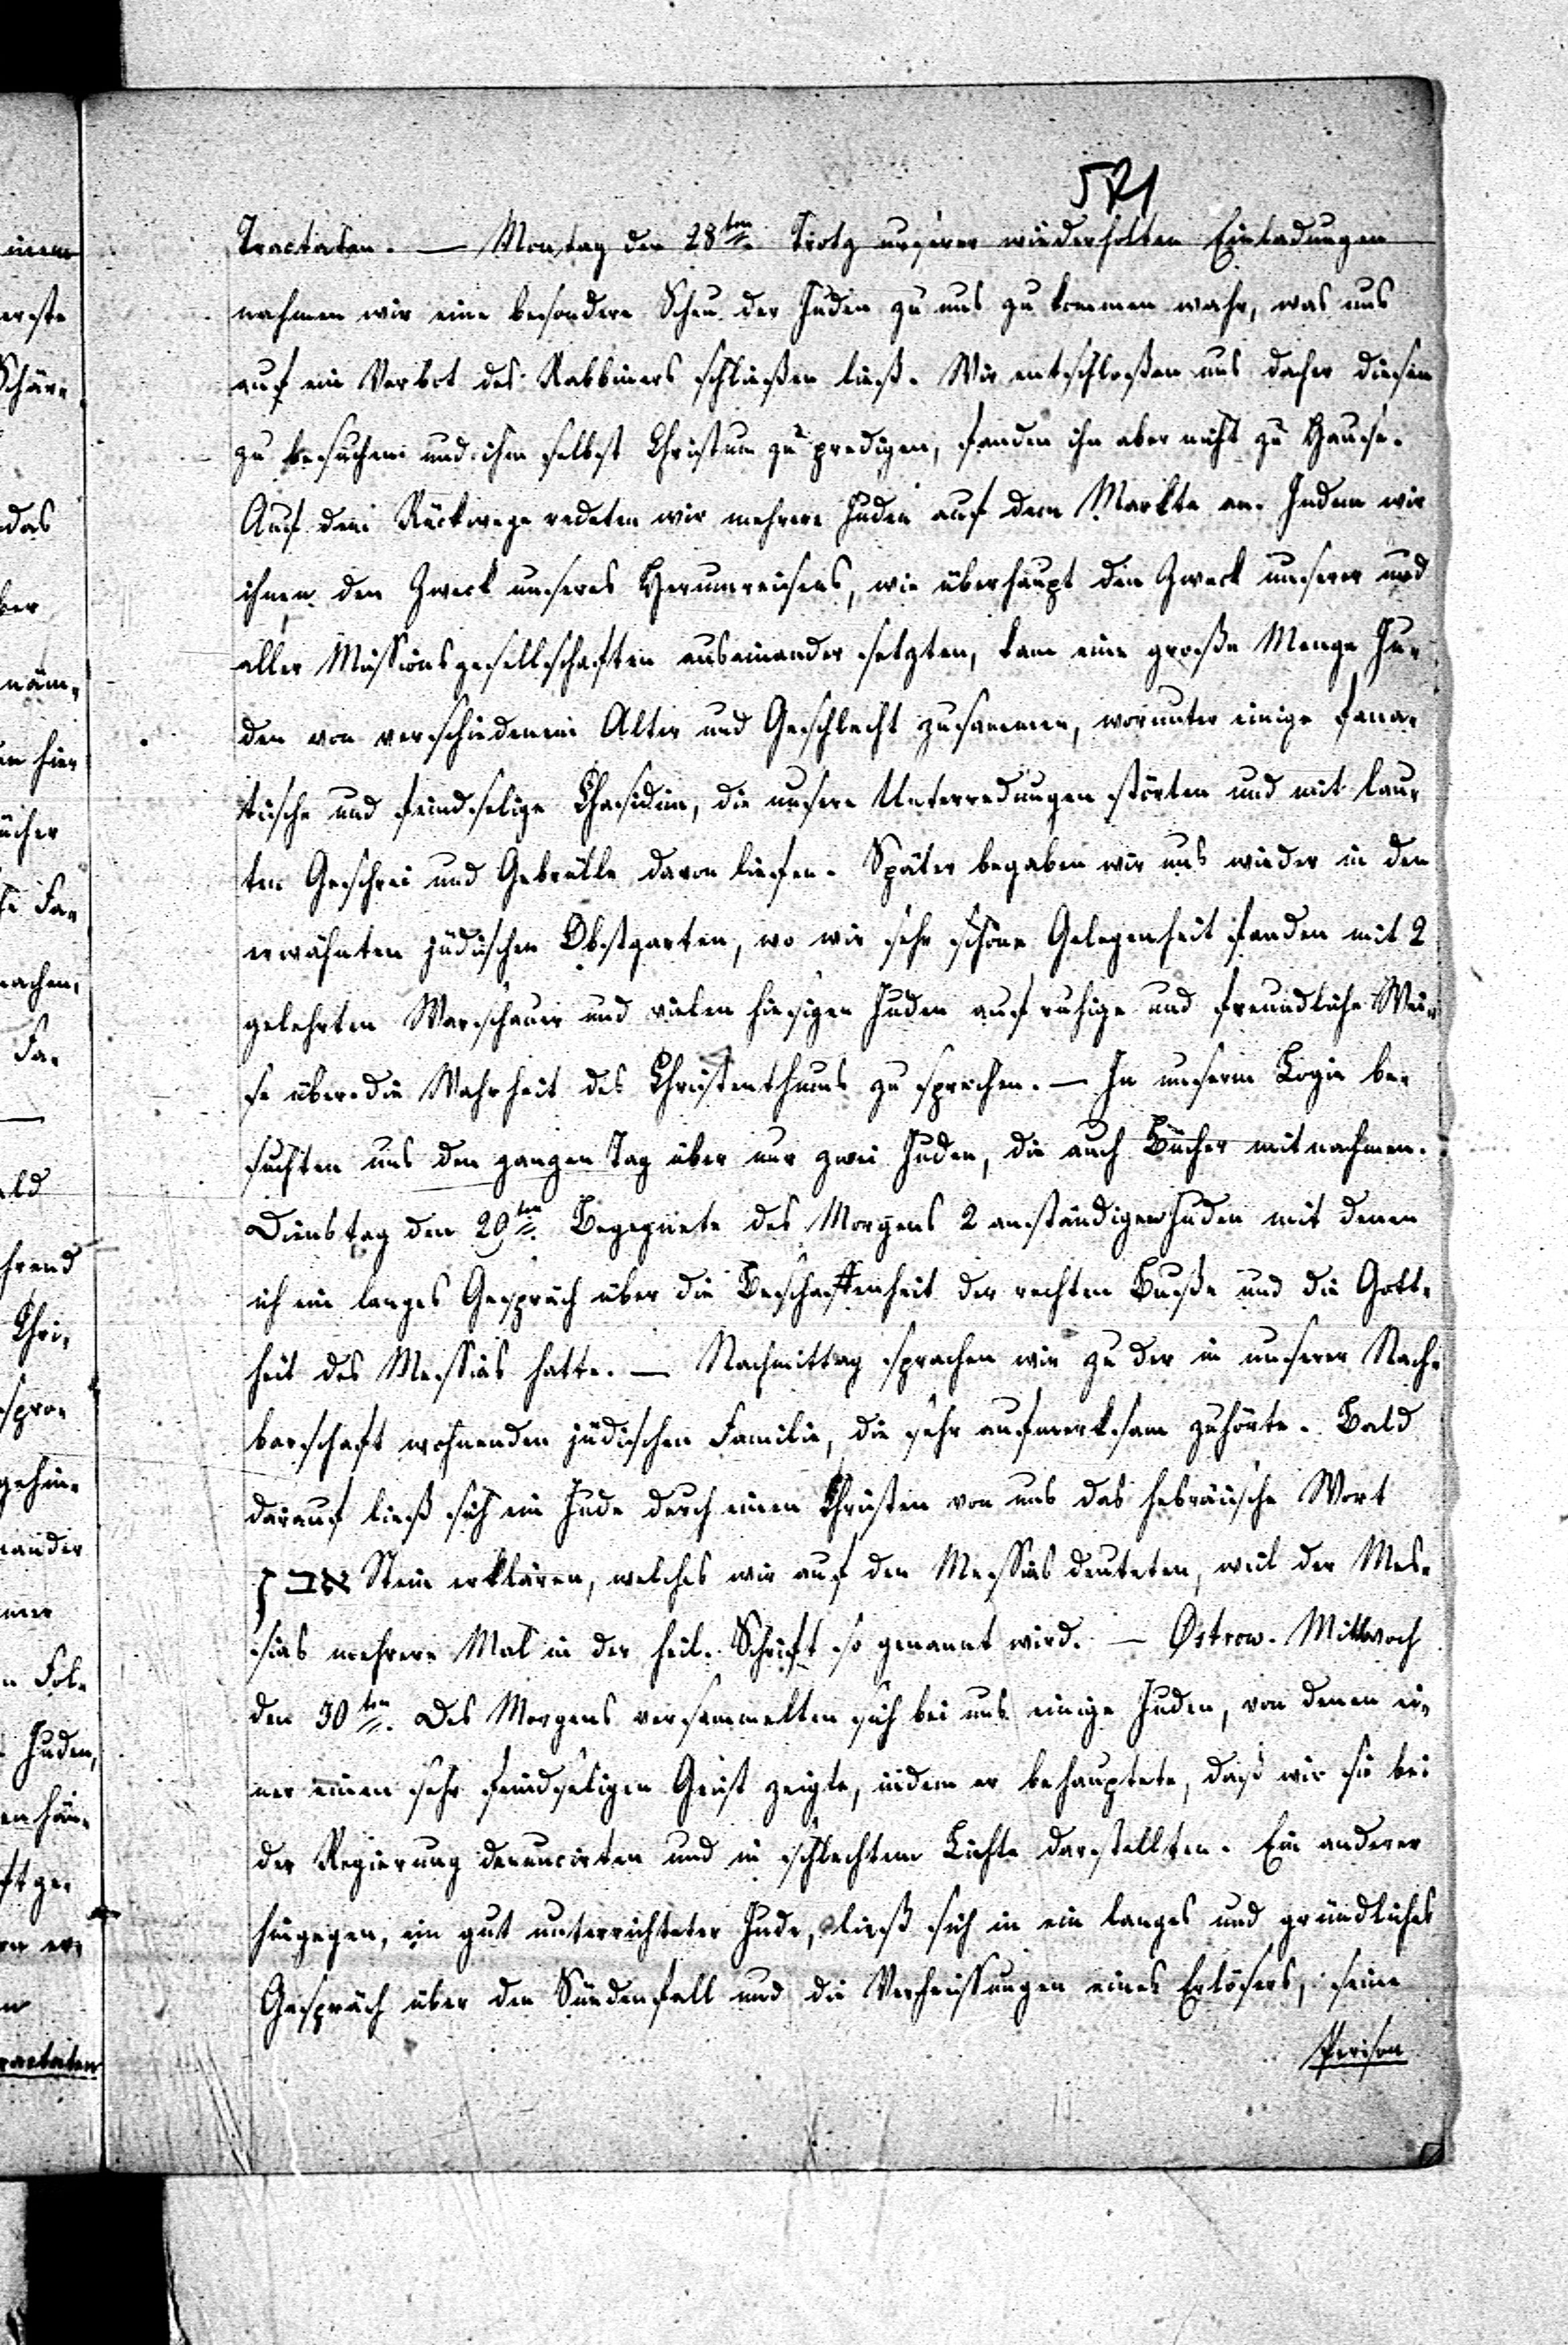 571
Tractaten. — Montag den 28ten. Trotz unserer wiederholten Einladungen
nahmen wir eine besondere Scheu der Juden zu uns zu kommen wahr, was uns
auf ein Verbot des Rabbiners schließen ließ. Wir entschloßen uns daher diesen
zu besuchen und ihm selbst Christum zu predigen, fanden ihn aber nicht zu Hause.
Auf dem Rückwege redeten wir mehrere Juden auf dem Markte an. Indem wir
ihnen den Zweck unseres Herumreisens, wie überhaupt den Zweck unserer und
aller Missionsgesellschaften auseinander setzten, kam eine große Menge Ju-
den von verschiedenem Alter und Geschlecht zusammen, worunter einige fana-
tische und feindselige Chasidim, die unsere Unterredungen störten und mit lau-
ten Geschrei und Gebrülle davon liefen. Später begaben wir uns wieder in den
erwähnten jüdischen Obstgarten, wo wir sehr schöne Gelegenheit fanden mit 2
gelehrten Warschauer und vielen hiesigen Juden auf ruhige und freundliche Wei-
se über die Wahrheit des Christenthums zu sprechen. — In unserm Logie be-
suchten uns den ganzen Tag über nur zwei Juden, die auch Bücher mitnahmen.
Dienstag den 29ten. Begegnete des Morgens 2 anständigen Juden mit denen
ich ein langes Gespräch über die Beschaffenheit der rechten Buße und die Gott-
heit des Messias hatte. — Nachmittag sprachen wir zu der in unserer Nach-
barschaft wohnenden jüdischen Familie, die sehr aufmerksam zuhörte. Bald
darauf ließ sich ein Jude durch einen Christen von uns das hebräische Wort
אבן Stein erklären, welches wir auf den Messias deuteten, weil der Mes-
sias mehrere Mal in der heil. Schrift so genannt wird. — Ostrow. Mittwoch
den 30ten. Des Morgens versammelten sich bei uns einige Juden, von denen ei-
ner einen sehr feindseligen Geist zeigte, indem er behauptete, daß wir sie bei
der Regierung denuncirten und in schlechtem Lichte darstellten. Ein anderer
hingegen, ein gut unterrichteter Jude, ließ sich in ein langes und gründliches
Gespräch über den Sündenfall und die Verheissungen eines Erlösers, seine
Person